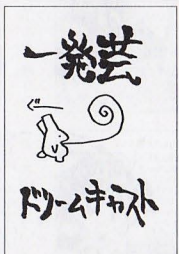 一発芸
ドリームキャスト